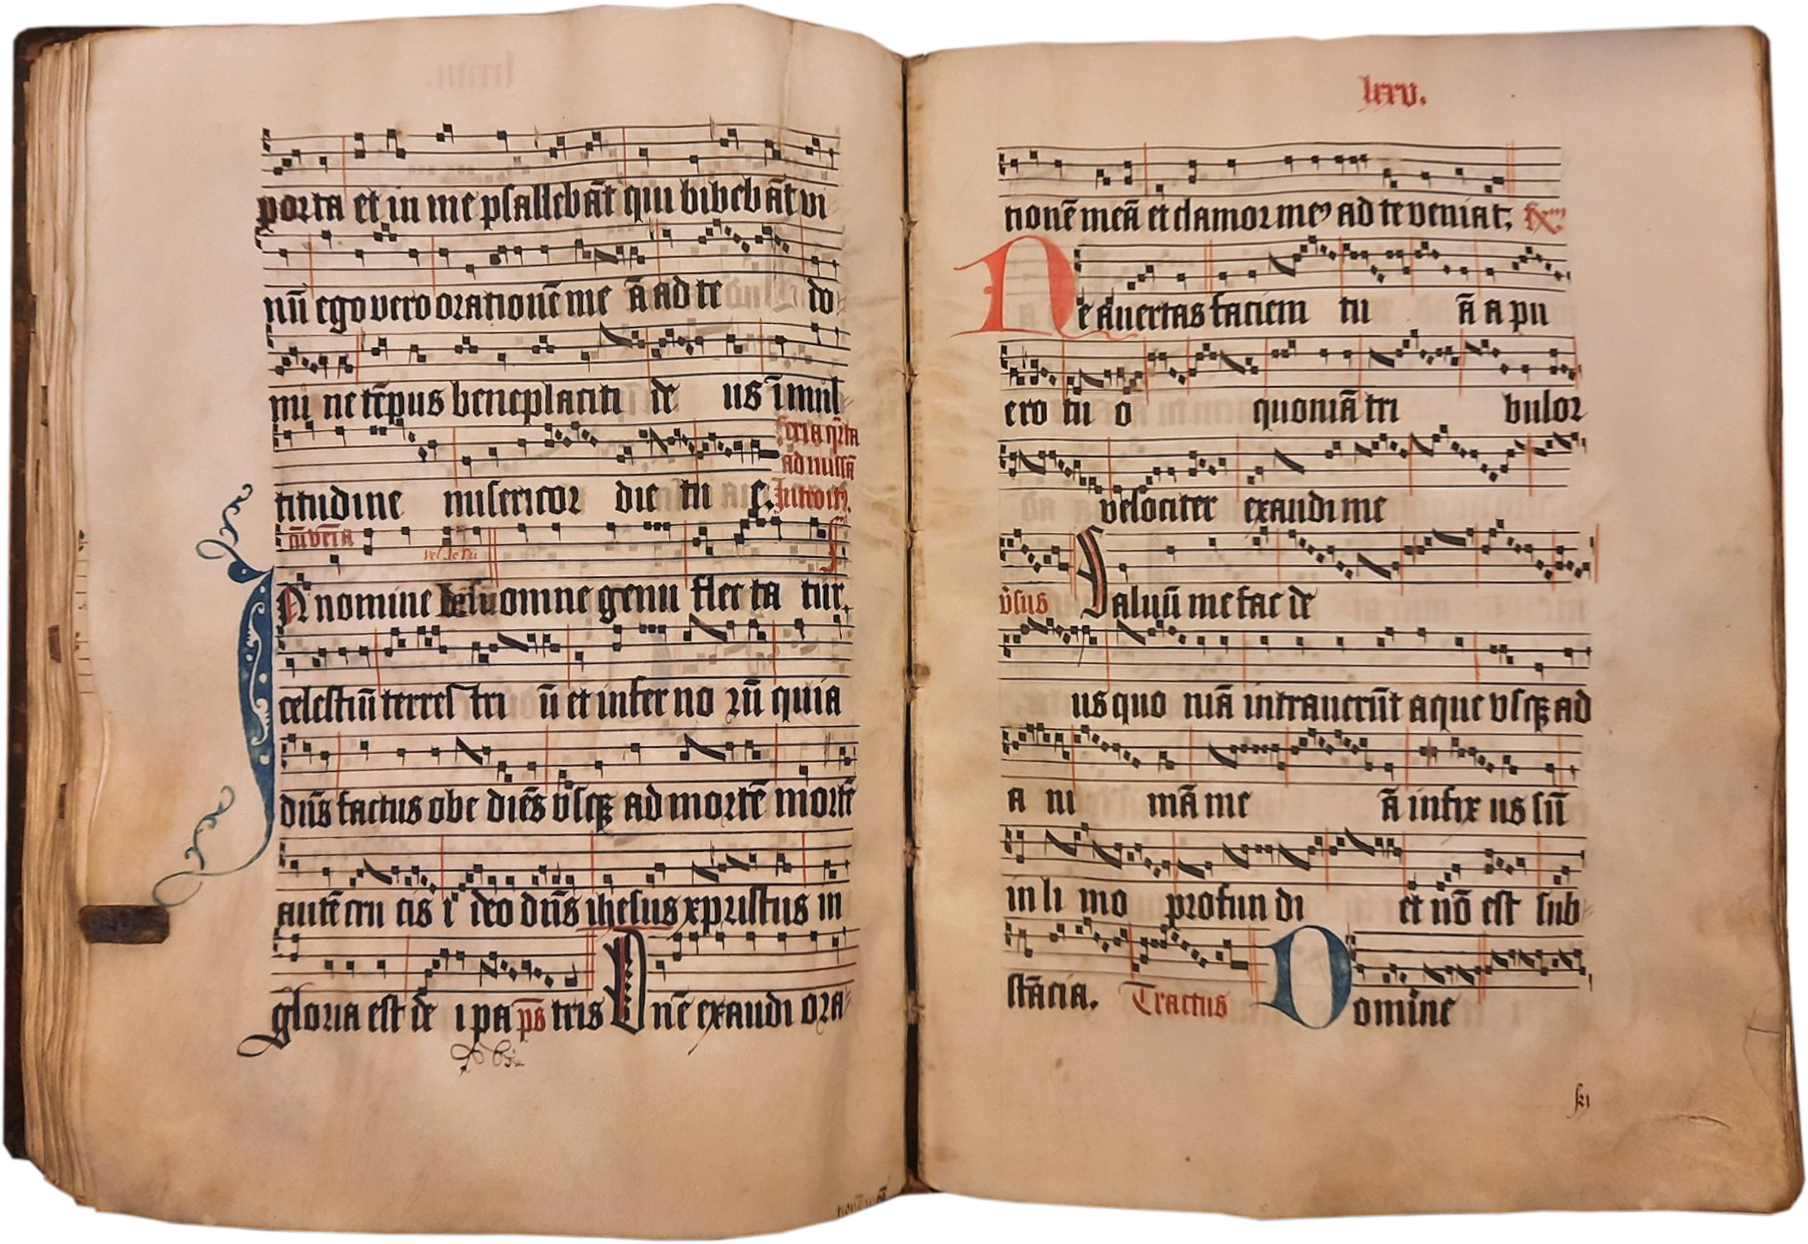 porta et in me psallebāt qui bibebāt vi
nū ego vero orationē me ā ad te do
mi ne tēpus beneplaciti de us ī mul
feria q̄rta
ad missā
titudine misericor die tu e. Introit9.
In nomine Iesu omne genu flec ta tur,
celestiū terres tri ū et infer no rū quia
dn̄s factus obe diēs vsqꝫ ad mortē mortē
autē cru cis i deo dn̄s ihesus xpristus in
gloria est de i pa p̄s tris Dnē exaudi ora
lxxv.
tionē meā et clamor meꝰ ad te veniat,
Ne auertas faciem tu ā a pu
ero tu o quoniā tri bulor
velociter exaudi me
v̄sus Saluū me fac de
us quo niā intrauerūt aque vsqꝫ ad
a ni mā me ā infix us sū
in li mo profun di et nō est sub
stācia. Tractus Domine